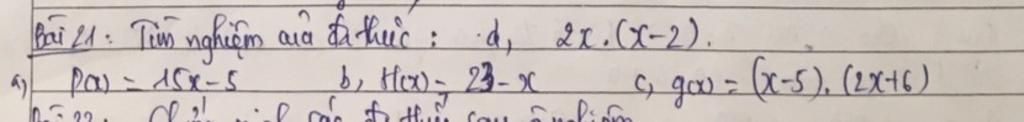 Bài 21: Tìm nghiệm của đa thức: d, 2x.(x-2).
a) P(x) = 15x-5 b, H(x) = 23-x c, g(x) = (x-5).(2x+6)